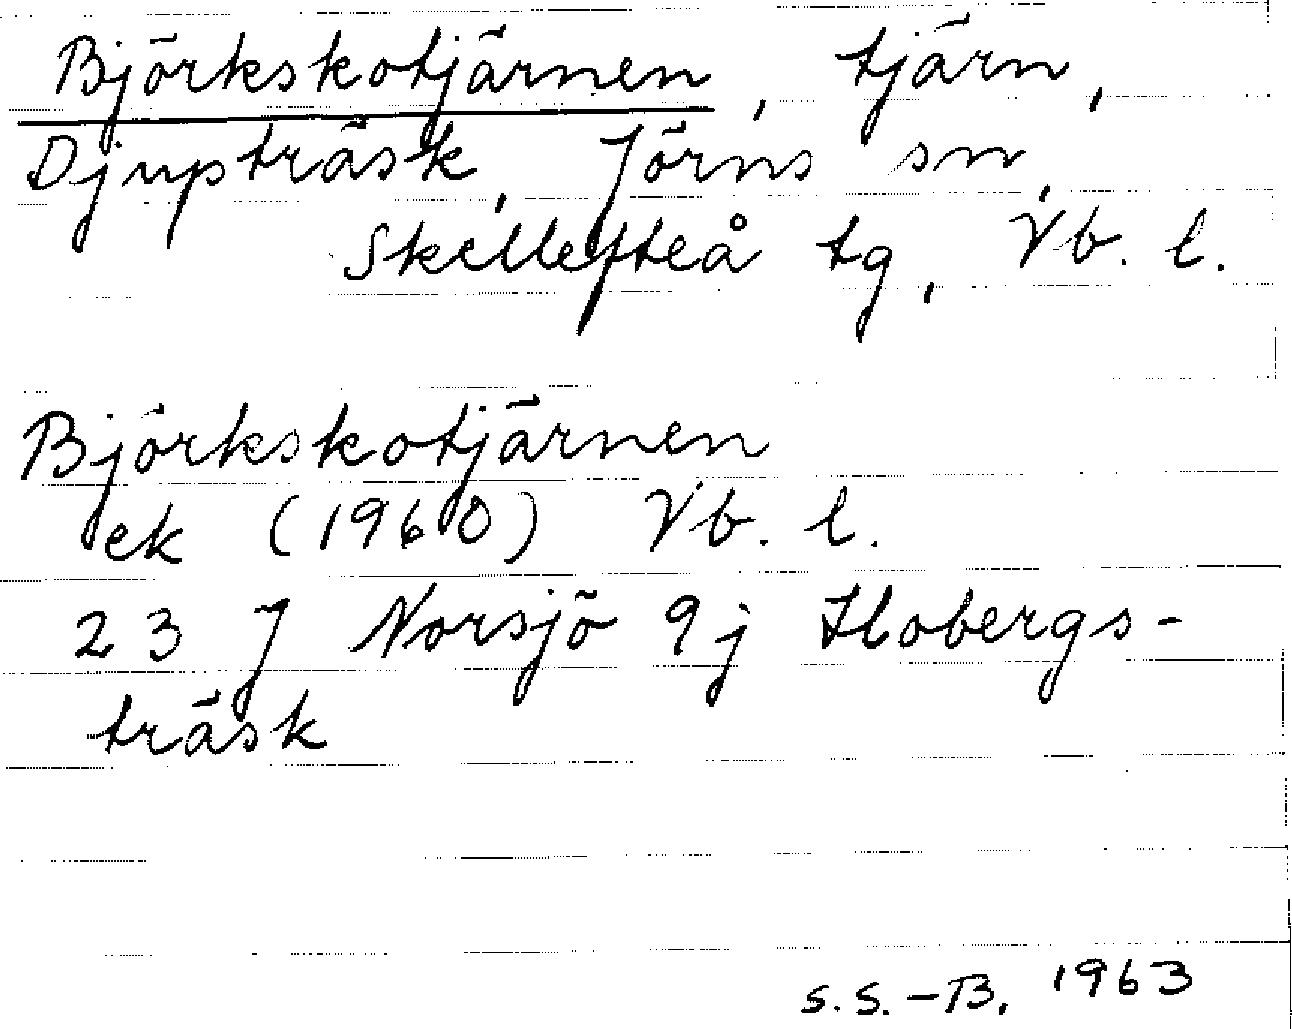 Björkskotjärnen, tjärn,
Djupträsk, Jörns sn,
Skellefteå tg, Vb. l.
Björkskotjärnen
ek (1960) Vb. l.
23 J Norsjö 9j Flobergs-
träsk
S.S.-B. 1963